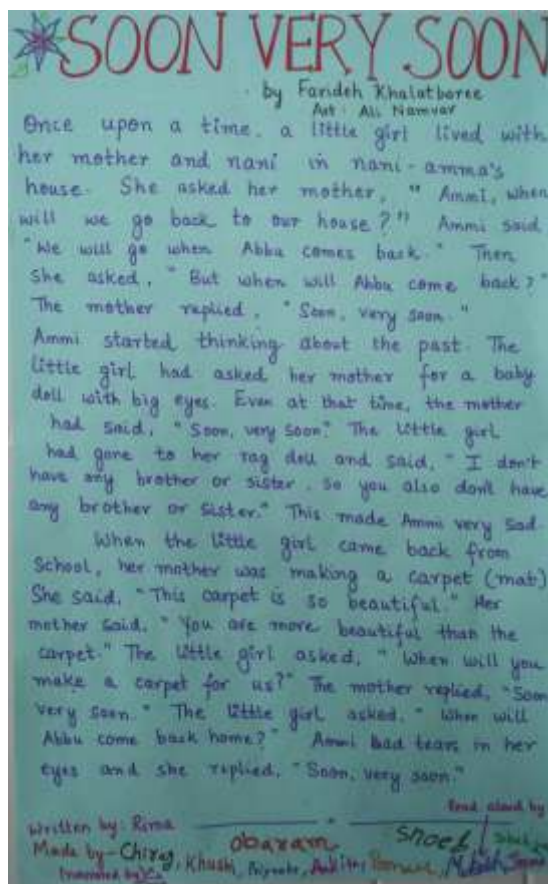 SOON VERY SOON
by Farideh Khalatbaree
Art: Ali Namvar
Once upon a time, a little girl lived with
her mother and nani in nani-amma's
house. She asked her mother, "Ammi, when
will we go back to our house?" Ammi said
"We will go when Abbu comes back." Then
She asked, "But when will Abbu come back?"
The mother replied, "Soon, very soon."
Ammi started thinking about the past. The
little girl had asked her mother for a baby
doll with big eyes. Even at that time, the mother
had said, "Soon, very soon." The little girl
had gone to her rag doll and said, "I don't
have any brother or sister, so you also don't have
any brother or sister." This made Ammi very sad.
When the little girl came back from
School, her mother was making a carpet (mat)
She said, "This carpet is so beautiful." Her
mother said, "You are more beautiful than the
carpet." The little girl asked, "When will you
make a carpet for us?" The mother replied, "Soon
very soon." The little girl asked, "When will
Abbu come back home?" Ammi had tears in her
eyes and she replied, "Soon, very soon."
Read aloud by
Written by: Rima
obaram
Made by- Chirag, Khushi, Priyanka, Ankita,
Translated by